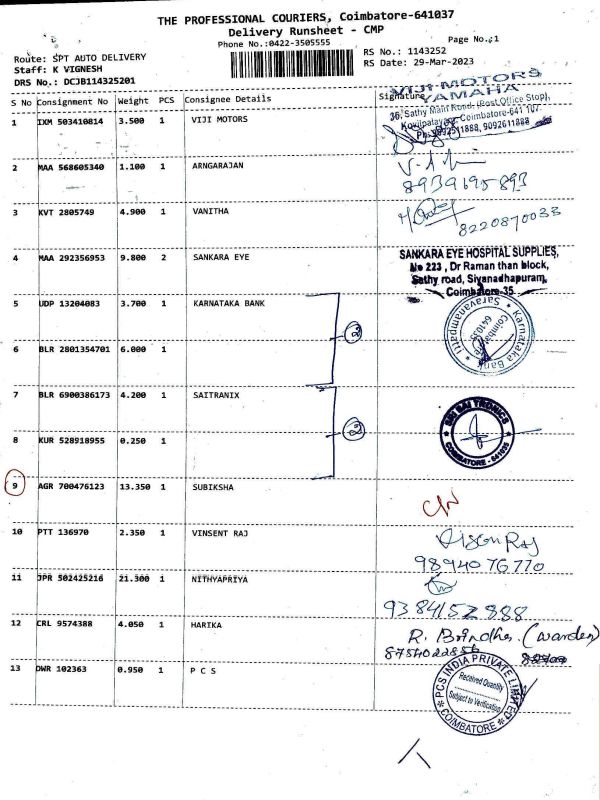 THE PROFESSIONAL COURIERS, Coimbatore-641037
Delivery Runsheet - CMP
Phone No.:0422-3505555 Page No.:1
Route: SPT AUTO DELIVERY RS No.: 1143252
Staff: K VIGNESH RS Date: 29-Mar-2023
DRS No.: DCJB114325201
S No Consignment No Weight PCS Consignee Details Signature
VIJI MOTORS
YAMAHA
36, Sathy Main Road, (Post Office Stop),
Kovilpalayam, Coimbatore-641 107
Ph: 9092611888, 9092611888
1 IXM 503410814 3.500 1 VIJI MOTORS
2 MAA 568605340 1.100 1 ARNGARAJAN
8939695893
3 KVT 2805749 4.900 1 VANITHA
8220870033
4 MAA 292356953 9.800 2 SANKARA EYE
SANKARA EYE HOSPITAL SUPPLIES,
No 223, Dr Raman than block,
Sathy road, Sivanadhapuram,
Coimbatore-35
5 UDP 13204083 3.700 1 KARNATAKA BANK
Karnataka Bank
Saravanampatti
Coimbatore
641035
2
6 BLR 2801354701 6.000 1
7 BLR 6900386173 4.200 1 SAITRANIX
SRI SAI TRONICS
COIMBATORE - 641035
2
8 KUR 528918955 0.250 1
9 AGR 700476123 13.350 1 SUBIKSHA
10 PTT 136970 2.350 1 VINSENT RAJ
9894076770
11 JPR 502425216 21.300 1 NITHYAPRIYA
9384152888
12 CRL 9574388 4.050 1 HARIKA
R. Brindha. (warden)
8754022856
13 DWR 102363 0.950 1 P C S
PCS INDIA PRIVATE LIMITED
Received Quantity
Subject to Verification
COIMBATORE